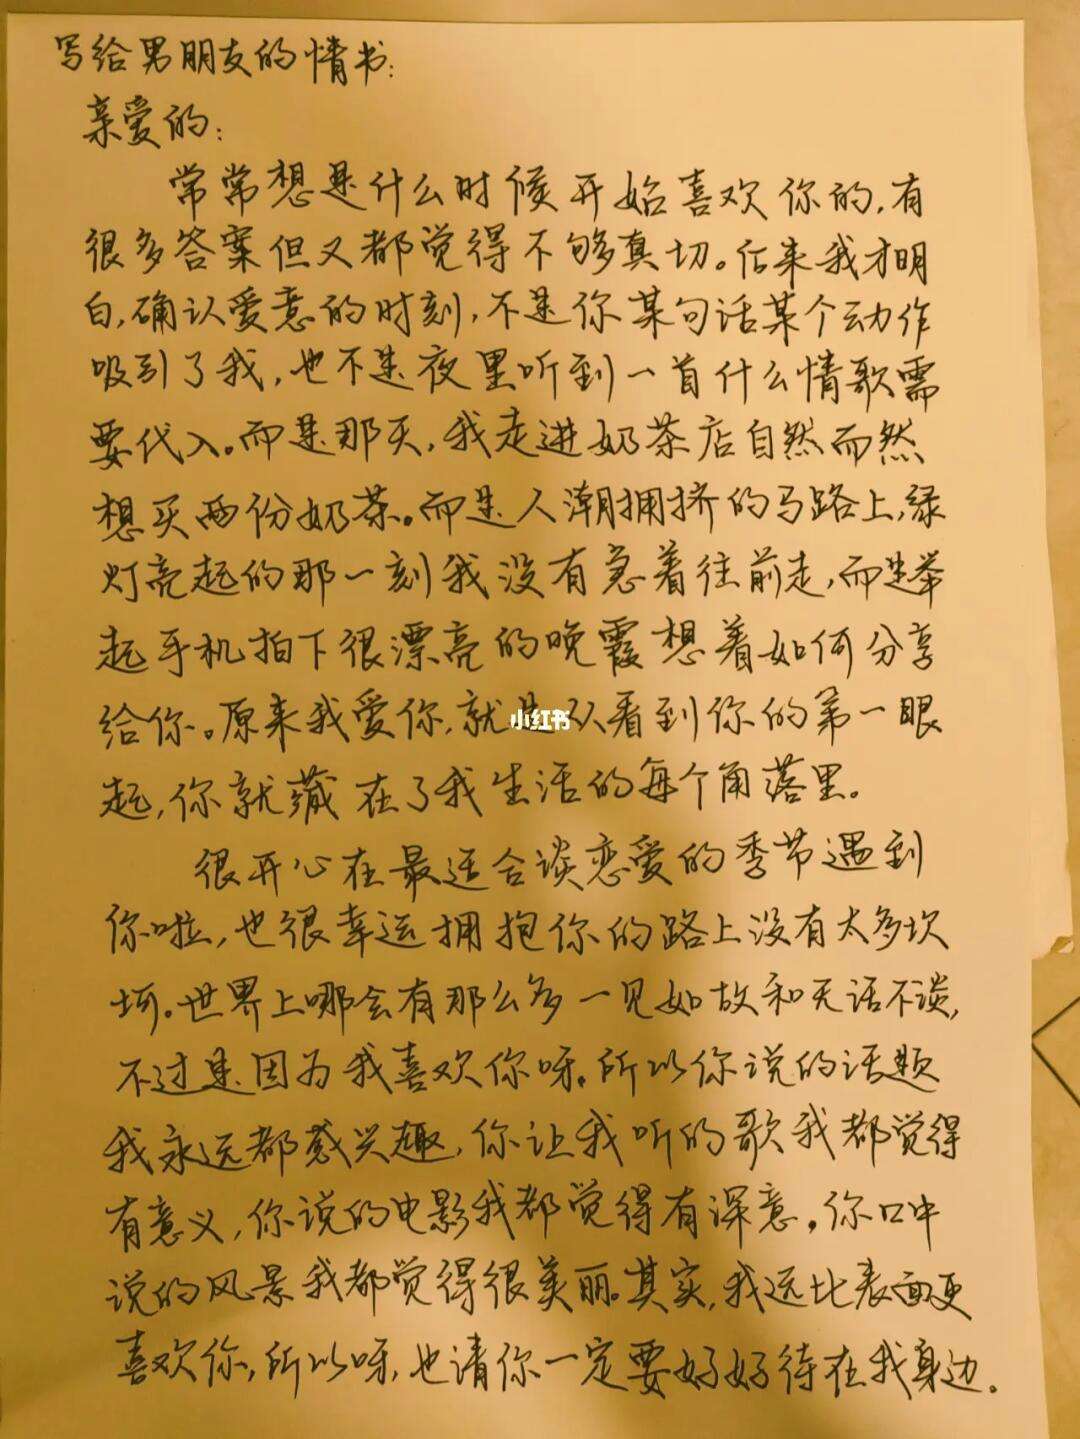 写给男朋友的情书：
亲爱的：
常常想是什么时候开始喜欢你的，有
很多答案但又都觉得不够真切。后来我才明
白，确认爱意的时刻，不是你某句话某个动作
吸引了我，也不是夜里听到一首什么情歌需
要代入。而是那天，我走进奶茶店自然而然
想买两份奶茶。而是人潮拥挤的马路上，绿
灯亮起的那一刻我没有急着往前走，而是举
起手机拍下很漂亮的晚霞想着如何分享
给你。原来我爱你，就是从看到你的第一眼
小红书
起，你就藏在了我生活的每个角落里。
很开心在最适合谈恋爱的季节遇到
你啦，也很幸运拥抱你的路上没有太多坎
坷。世界上哪会有那么多一见如故和无话不谈，
不过是因为我喜欢你呀。所以你说的话题
我永远都感兴趣，你让我听的歌我都觉得
有意义，你说的电影我都觉得有深意。你口中
说的风景我都觉得很美丽。其实，我远比表面更
喜欢你，所以呀，也请你一定要好好待在我身边。